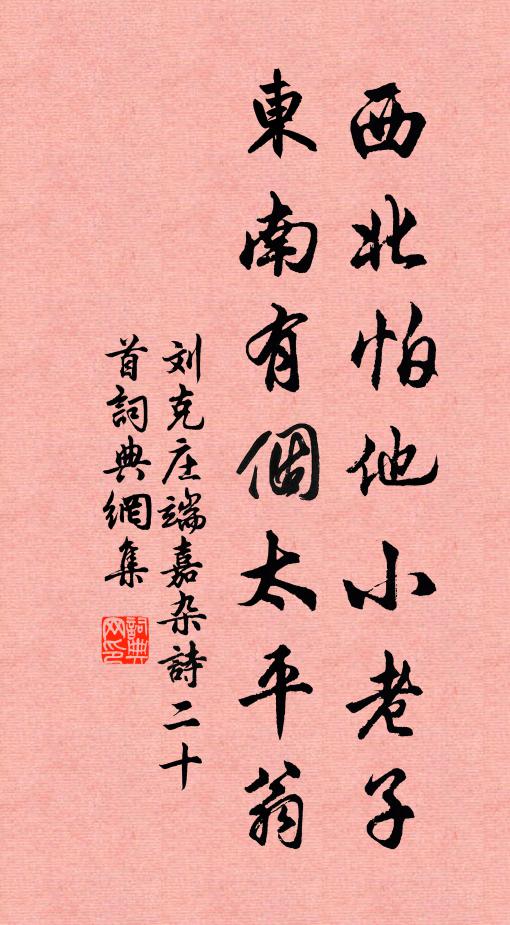 西北怕他小老子
東南有個太平翁
刘克庄端嘉杂詩二十
首詞典網集
詞典
网印